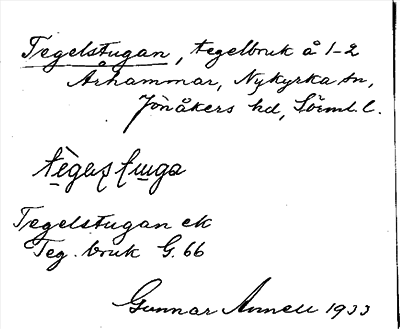 Tegelstugan, tegelbruk å 1-2
Århammar, Nykyrka sn,
Jönåkers hd, Söderml. l.
Tegelstugan ek
Teg. bruk G. 66
Gunnar Annell 1933